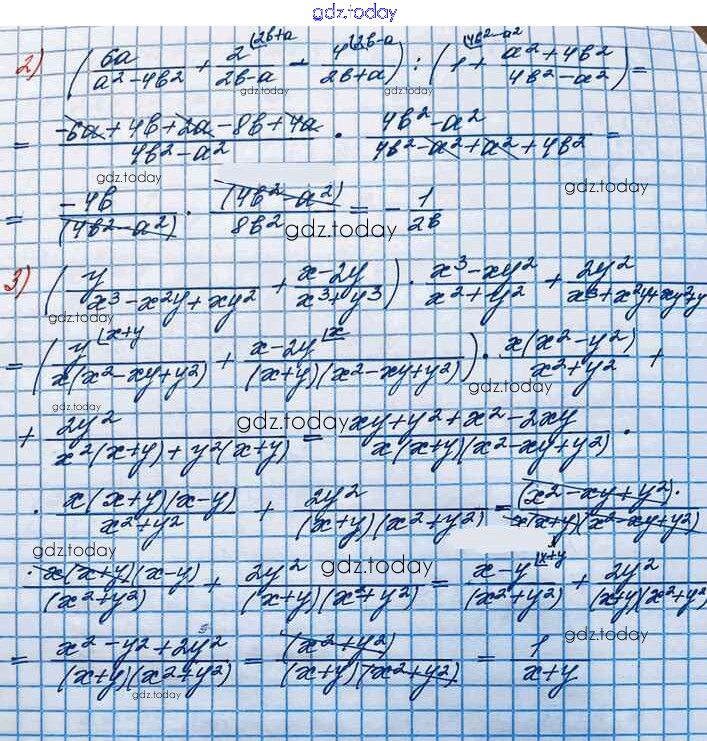 gdz.today
2) (6a/(a²-4b²) + 2/(2b-a) |2b+a - 4/(2b+a) |2b-a) : (1 |4b²-a² + (a²+4b²)/(4b²-a²)) =
gdz.today gdz.today
= (-6a+4b+2a-8b+4a)/(4b²-a²) · (4b²-a²)/(4b²-a²+a²+4b²) =
gdz.today gdz.today
= -4b/(4b²-a²) · (4b²-a²)/8b² = -1/2b
gdz.today
3) (y/(x³-x²y+xy²) + (x-2y)/(x³+y³)) · (x³-xy²)/(x²+y²) + 2y²/(x³+x²y+xy²+y
gdz.today gdz.today
= (y/(x(x²-xy+y²)) |x+y + (x-2y)/((x+y)(x²-xy+y²)) |x) · x(x²-y²)/(x²+y²) +
gdz.today gdz.today
+ 2y²/(x²(x+y)+y²(x+y)) = (xy+y²+x²-2xy)/(x(x+y)(x²-xy+y²)) ·
gdz.today
· x(x+y)(x-y)/(x²+y²) + 2y²/((x+y)(x²+y²)) = (x²-xy+y²)·/(x(x+y)(x²-xy+y²))
gdz.today gdz.today
· x(x+y)(x-y)/(x²+y²) + 2y²/((x+y)(x²+y²)) = (x-y)/(x²+y²) |x+y + 2y²/((x+y)(x²+y²
gdz.today
= (x²-y²+2y²)/((x+y)(x²+y²)) = (x²+y²)/((x+y)(x²+y²)) = 1/(x+y)
gdz.today